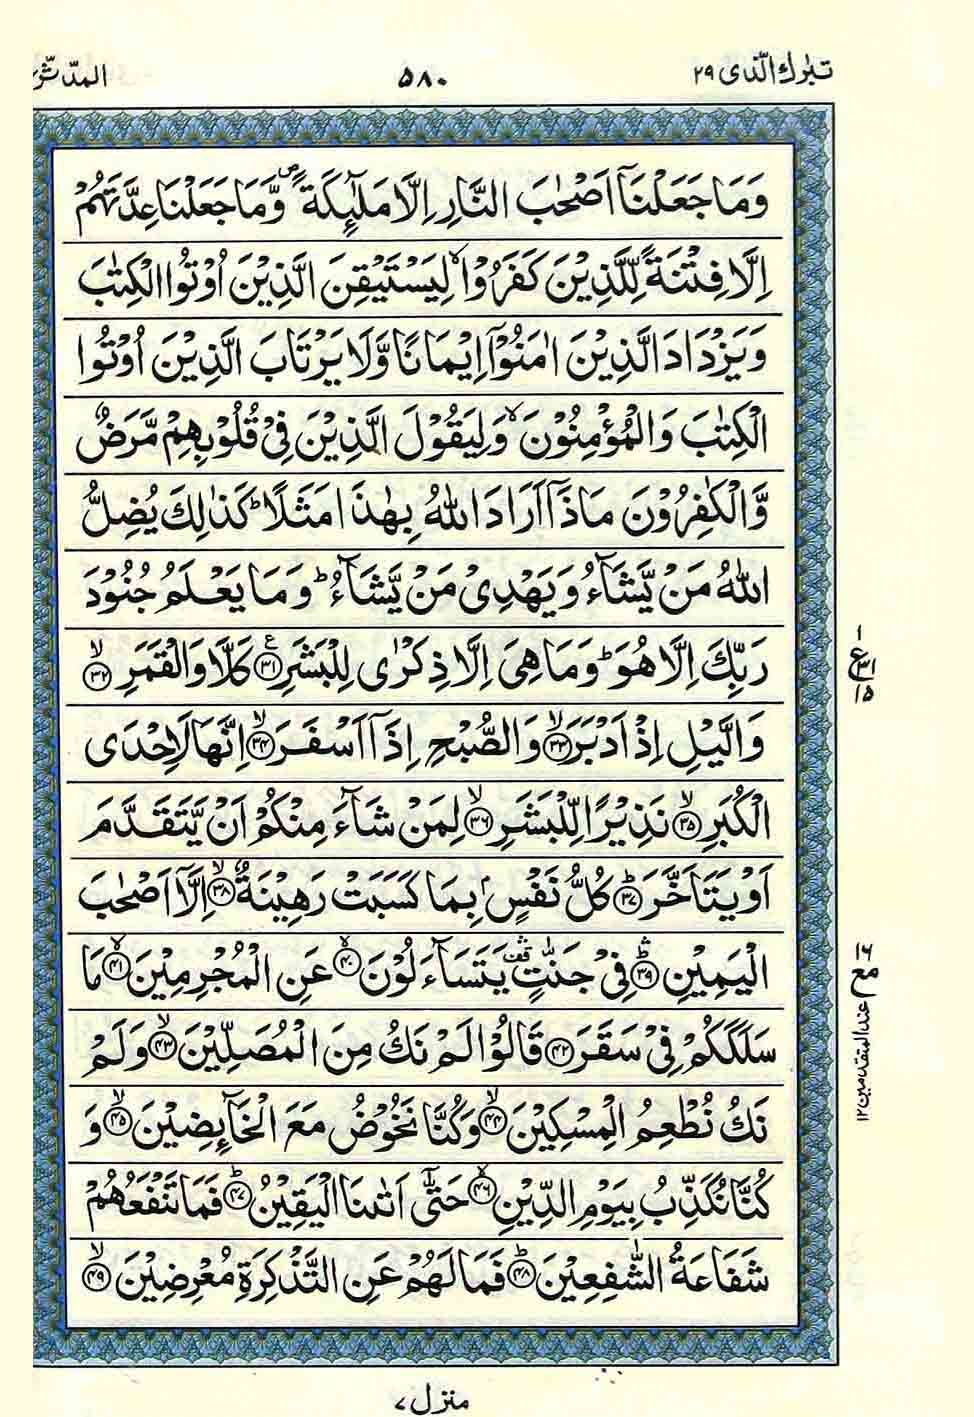 تبٰرك الّذی ٢٩
٥٨٠
المدّثّر
وَمَا جَعَلْنَاۤ اَصْحٰبَ النَّارِ اِلَّا مَلٰٓىِٕكَةً ۪ وَّمَا جَعَلْنَا عِدَّتَهُمْ
اِلَّا فِتْنَةً لِّلَّذِیْنَ كَفَرُوْا ۙ لِیَسْتَیْقِنَ الَّذِیْنَ اُوْتُوا الْكِتٰبَ
وَیَزْدَادَ الَّذِیْنَ اٰمَنُوْۤا اِیْمَانًا وَّلَا یَرْتَابَ الَّذِیْنَ اُوْتُوا
الْكِتٰبَ وَالْمُؤْمِنُوْنَ ۙ وَلِیَقُوْلَ الَّذِیْنَ فِیْ قُلُوْبِهِمْ مَّرَضٌ
وَّالْكٰفِرُوْنَ مَاذَاۤ اَرَادَ اللّٰهُ بِهٰذَا مَثَلًا ؕ كَذٰلِكَ یُضِلُّ
اللّٰهُ مَنْ یَّشَآءُ وَیَهْدِیْ مَنْ یَّشَآءُ ؕ وَمَا یَعْلَمُ جُنُوْدَ
رَبِّكَ اِلَّا هُوَ ؕ وَمَا هِیَ اِلَّا ذِكْرٰی لِلْبَشَرِ ﴿٣١﴾ ع كَلَّا وَالْقَمَرِ ۙ ﴿٣٢﴾
وَالَّیْلِ اِذْ اَدْبَرَ ۙ ﴿٣٣﴾ وَالصُّبْحِ اِذَاۤ اَسْفَرَ ۙ ﴿٣٤﴾ اِنَّهَا لَاِحْدَی
الْكُبَرِ ۙ ﴿٣٥﴾ نَذِیْرًا لِّلْبَشَرِ ۙ ﴿٣٦﴾ لِمَنْ شَآءَ مِنْكُمْ اَنْ یَّتَقَدَّمَ
اَوْ یَتَاَخَّرَ ؕ ﴿٣٧﴾ كُلُّ نَفْسٍۭ بِمَا كَسَبَتْ رَهِیْنَةٌ ۙ ﴿٣٨﴾ اِلَّاۤ اَصْحٰبَ
الْیَمِیْنِ ؕۛ ﴿٣٩﴾ فِیْ جَنّٰتٍ ۛ قف یَتَسَآءَلُوْنَ ۙ ﴿٤٠﴾ عَنِ الْمُجْرِمِیْنَ ۙ ﴿٤١﴾ مَا
سَلَكَكُمْ فِیْ سَقَرَ ﴿٤٢﴾ قَالُوْا لَمْ نَكُ مِنَ الْمُصَلِّیْنَ ۙ ﴿٤٣﴾ وَلَمْ
نَكُ نُطْعِمُ الْمِسْكِیْنَ ۙ ﴿٤٤﴾ وَكُنَّا نَخُوْضُ مَعَ الْخَآىِٕضِیْنَ ۙ ﴿٤٥﴾ وَ
كُنَّا نُكَذِّبُ بِیَوْمِ الدِّیْنِ ۙ ﴿٤٦﴾ حَتّٰۤی اَتٰىنَا الْیَقِیْنُ ؕ ﴿٤٧﴾ فَمَا تَنْفَعُهُمْ
شَفَاعَةُ الشّٰفِعِیْنَ ؕ ﴿٤٨﴾ فَمَا لَهُمْ عَنِ التَّذْكِرَةِ مُعْرِضِیْنَ ۙ ﴿٤٩﴾
١
ع ٣١
١٥
١٦
مع
عند المتقدمين ١٢
منزل ٧